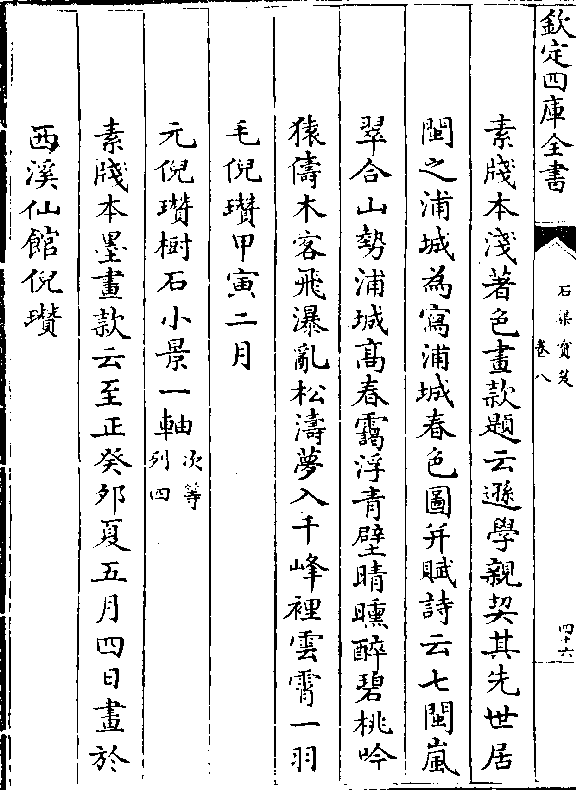 欽定四庫全書
石渠寶笈
卷八
四十六
素牋本淺著色畫款題云遜學親契其先世居
閩之浦城為寫浦城春色圖并賦詩云七閩嵐
翠合山勢浦城髙春靄浮青壁晴曛醉碧桃吟
猿儔木客飛瀑亂松濤夢入千峰裡雲霄一羽
毛倪瓚甲寅二月
元倪瓚樹石小景一軸次等列四
素牋本墨畫款云至正癸卯夏五月四日畫於
西溪仙館倪瓚